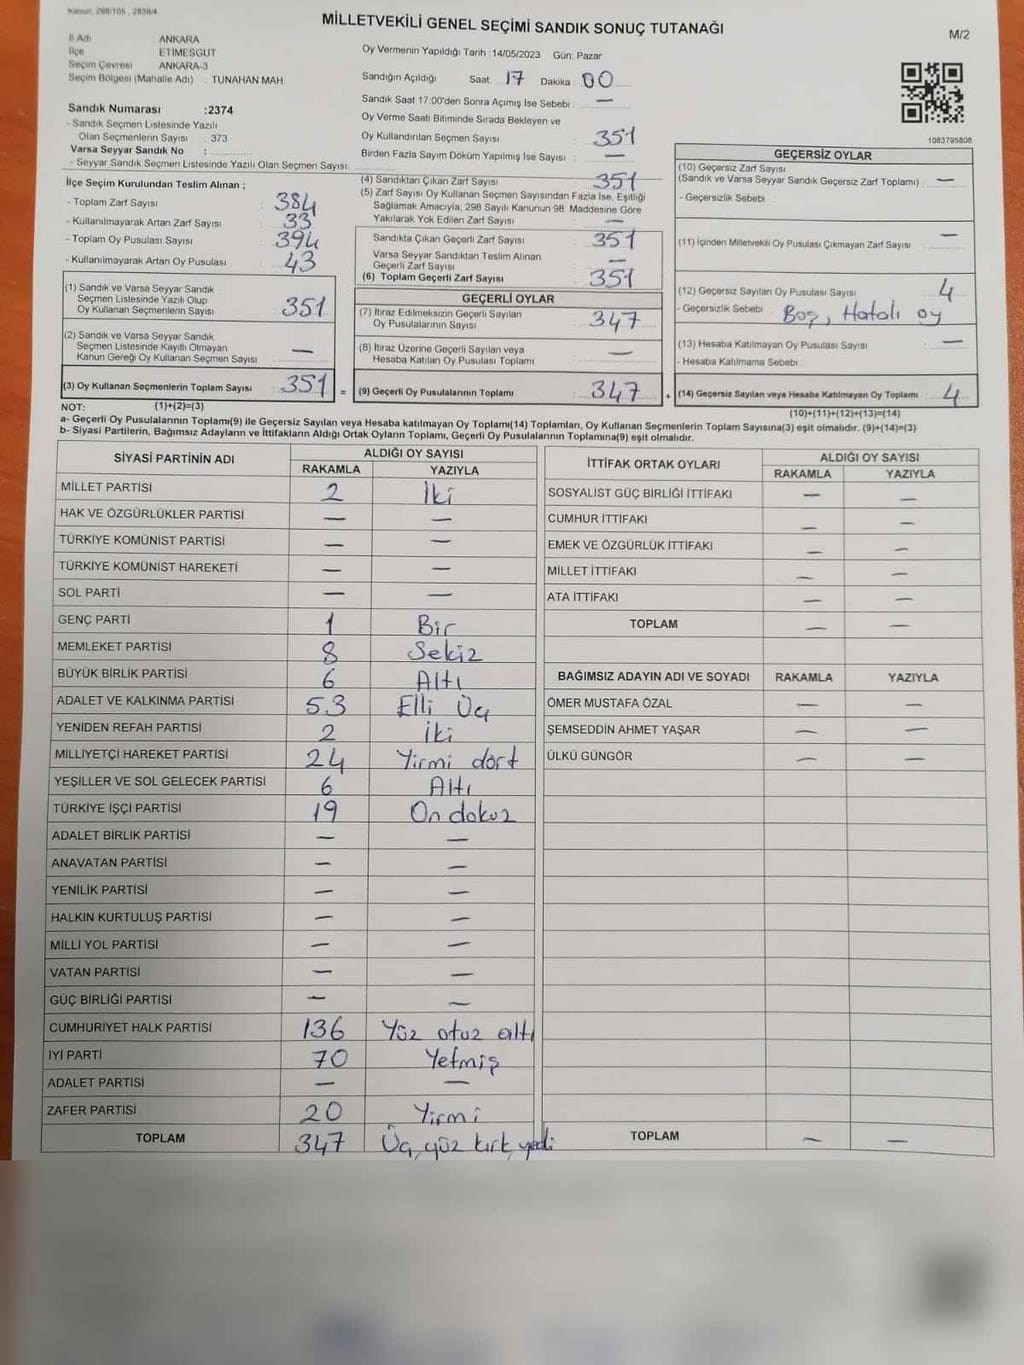 Kanun, 298/105 , 2839/4
MİLLETVEKİLİ GENEL SEÇİMİ SANDIK SONUÇ TUTANAĞI
M/2
İl Adı ANKARA
İlçe ETİMESGUT
Seçim Çevresi ANKARA-3
Seçim Bölgesi (Mahalle Adı) : TUNAHAN MAH.
Oy Vermenin Yapıldığı Tarih :14/05/2023 Gün: Pazar
Sandığın Açıldığı Saat: 17 Dakika : 00
Sandık Saat 17:00'den Sonra Açımış İse Sebebi : —
Oy Verme Saati Bitiminde Sırada Bekleyen ve
Oy Kullandırılan Seçmen Sayısı : 351
Birden Fazla Sayım Döküm Yapılmış İse Sayısı : —
Sandık Numarası :2374
- Sandık Seçmen Listesinde Yazılı
Olan Seçmenlerin Sayısı : 373
Varsa Seyyar Sandık No :
- Seyyar Sandık Seçmen Listesinde Yazılı Olan Seçmen Sayısı:
1083795808
İlçe Seçim Kurulundan Teslim Alınan ;
- Toplam Zarf Sayısı : 384
- Kullanılmayarak Artan Zarf Sayısı : 33
- Toplam Oy Pusulası Sayısı : 394
- Kullanılmayarak Artan Oy Pusulası : 43
(1) Sandık ve Varsa Seyyar Sandık
Seçmen Listesinde Yazılı Olup
Oy Kullanan Seçmenlerin Sayısı : 351
(2) Sandık ve Varsa Seyyar Sandık
Seçmen Listesinde Kayıtlı Olmayan
Kanun Gereği Oy Kullanan Seçmen Sayısı : —
(3) Oy Kullanan Seçmenlerin Toplam Sayısı : 351 =
(1)+(2)=(3)
(4) Sandıktan Çıkan Zarf Sayısı : 351
(5) Zarf Sayısı Oy Kullanan Seçmen Sayısından Fazla İse, Eşitliği
Sağlamak Amacıyla; 298 Sayılı Kanunun 98. Maddesine Göre
Yakılarak Yok Edilen Zarf Sayısı : —
Sandıkta Çıkan Geçerli Zarf Sayısı : 351
Varsa Seyyar Sandıktan Teslim Alınan
Geçerli Zarf Sayısı : —
(6) Toplam Geçerli Zarf Sayısı : 351
GEÇERLİ OYLAR
(7) İtiraz Edilmeksizin Geçerli Sayılan
Oy Pusulalarının Sayısı : 347
(8) İtiraz Üzerine Geçerli Sayılan veya
Hesaba Katılan Oy Pusulası Toplamı : —
(9) Geçerli Oy Pusulalarının Toplamı : 347 +
GEÇERSİZ OYLAR
(10) Geçersiz Zarf Sayısı
(Sandık ve Varsa Seyyar Sandık Geçersiz Zarf Toplamı) : —
- Geçersizlik Sebebi :
(11) İçinden Milletvekili Oy Pusulası Çıkmayan Zarf Sayısı : —
(12) Geçersiz Sayılan Oy Pusulası Sayısı : 4
- Geçersizlik Sebebi : Boş, Hatalı oy
(13) Hesaba Katılmayan Oy Pusulası Sayısı : —
- Hesaba Katılmama Sebebi :
(14) Geçersiz Sayılan veya Hesaba Katılmayan Oy Toplamı : 4
(10)+(11)+(12)+(13)=(14)
NOT:
a- Geçerli Oy Pusulası Toplamı(9) ile Geçersiz Sayılan veya Hesaba katılmayan Oy Toplamı(14) Toplamları, Oy Kullanan Seçmenlerin Toplam Sayısına(3) eşit olmalıdır. (9)+(14)=(3)
b- Siyasi Partilerin, Bağımsız Adayların ve İttifakların Aldığı Ortak Oyların Toplamı, Geçerli Oy Pusulalarının Toplamına(9) eşit olmalıdır.
SİYASİ PARTİNİN ADI ALDIĞI OY SAYISI
RAKAMLA YAZIYLA
MİLLET PARTİSİ 2 İki
HAK VE ÖZGÜRLÜKLER PARTİSİ — —
TÜRKİYE KOMÜNİST PARTİSİ — —
TÜRKİYE KOMÜNİST HAREKETİ — —
SOL PARTİ — —
GENÇ PARTİ 1 Bir
MEMLEKET PARTİSİ 8 Sekiz
BÜYÜK BİRLİK PARTİSİ 6 Altı
ADALET VE KALKINMA PARTİSİ 53 Elli Üç
YENİDEN REFAH PARTİSİ 2 İki
MİLLİYETÇİ HAREKET PARTİSİ 24 Yirmi dört
YEŞİLLER VE SOL GELECEK PARTİSİ 6 Altı
TÜRKİYE İŞÇİ PARTİSİ 19 On dokuz
ADALET BİRLİK PARTİSİ — —
ANAVATAN PARTİSİ — —
YENİLİK PARTİSİ — —
HALKIN KURTULUŞ PARTİSİ — —
MİLLİ YOL PARTİSİ — —
VATAN PARTİSİ — —
GÜÇ BİRLİĞİ PARTİSİ — —
CUMHURİYET HALK PARTİSİ 136 Yüz otuz altı
İYİ PARTİ 70 Yetmiş
ADALET PARTİSİ — —
ZAFER PARTİSİ 20 Yirmi
TOPLAM 347 Üç yüz kırk yedi
İTTİFAK ORTAK OYLARI ALDIĞI OY SAYISI
RAKAMLA YAZIYLA
SOSYALİST GÜÇ BİRLİĞİ İTTİFAKI — —
CUMHUR İTTİFAKI — —
EMEK VE ÖZGÜRLÜK İTTİFAKI — —
MİLLET İTTİFAKI — —
ATA İTTİFAKI — —
TOPLAM — —
BAĞIMSIZ ADAYIN ADI VE SOYADI RAKAMLA YAZIYLA
ÖMER MUSTAFA ÖZAL — —
ŞEMSEDDİN AHMET YAŞAR — —
ÜLKÜ GÜNGÖR — —
TOPLAM — —